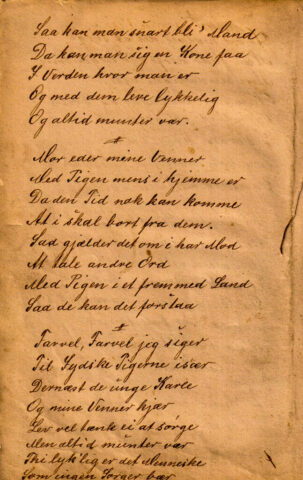 Saa kan man snart bli' Mand
Da kan man sig en Kone faa
I Verden hvor man er
Og med dem leve lykkelig
Og altid munter vær.
Mor eder mine Venner
Med Pigen mens i hjemme er
Da den Tid nok kan komme
At i skal bort fra dem.
Saa gjælder det om i har Mod
At tale andre Ord
Med Pigen i et fremmed Land
Saa de kan det forstaa
Farvel, Farvel jeg siger
Til Jydske Pigerne især
Dernæst de unge Karle
Og mine Venner kjær
Lev vel tænk ei at sørge
Men altid munter vær
Thi lyk'lig er det Menneske
Som ingen Sorger bær